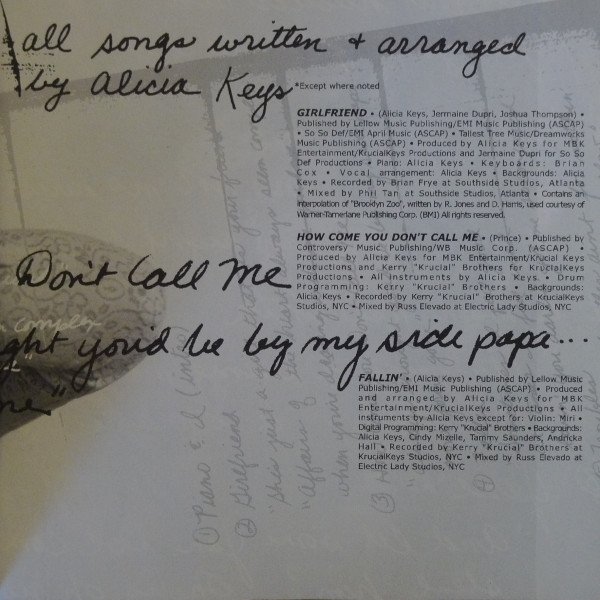 all songs written + arranged
by Alicia Keys *Except where noted
GIRLFRIEND • (Alicia Keys, Jermaine Dupri, Joshua Thompson) •
Published by Lellow Music Publishing/EMI Music Publishing (ASCAP)
• So So Def/EMI April Music (ASCAP) • Tallest Tree Music/Dreamworks
Music Publishing (ASCAP) • Produced by Alicia Keys for MBK
Entertainment/KrucialKeys Productions and Jermaine Dupri for So So
Def Productions • Piano: Alicia Keys • Keyboards: Brian
Cox • Vocal arrangement: Alicia Keys • Backgrounds: Alicia
Keys • Recorded by Brian Frye at Southside Studios, Atlanta
• Mixed by Phil Tan at Southside Studios, Atlanta • Contains an
interpolation of "Brooklyn Zoo", written by R. Jones and D. Harris, used courtesy of
Warner-Tamerlane Publishing Corp. (BMI) All rights reserved.
HOW COME YOU DON'T CALL ME • (Prince) • Published by
Controversy Music Publishing/WB Music Corp. (ASCAP) •
Produced by Alicia Keys for MBK Entertainment/Krucial Keys
Productions and Kerry "Krucial" Brothers for KrucialKeys
Productions • All instruments by Alicia Keys • Drum
Programming: Kerry "Krucial" Brothers • Backgrounds:
Alicia Keys • Recorded by Kerry "Krucial" Brothers at KrucialKeys
Studios, NYC • Mixed by Russ Elevado at Electric Lady Studios, NYC
Don't Call Me
complex
ght you'd be by my side papa...
me"
FALLIN' • (Alicia Keys) • Published by Lellow Music
Publishing/EMI Music Publishing (ASCAP) • Produced
and arranged by Alicia Keys for MBK
Entertainment/KrucialKeys Productions • All
instruments by Alicia Keys except for: Violin: Miri •
Digital Programming: Kerry "Krucial" Brothers • Backgrounds:
Alicia Keys, Cindy Mizelle, Tammy Saunders, Andricka
Hall • Recorded by Kerry "Krucial" Brothers at
KrucialKeys Studios, NYC • Mixed by Russ Elevado at
Electric Lady Studios, NYC
① Piano & I
② Girlfriend